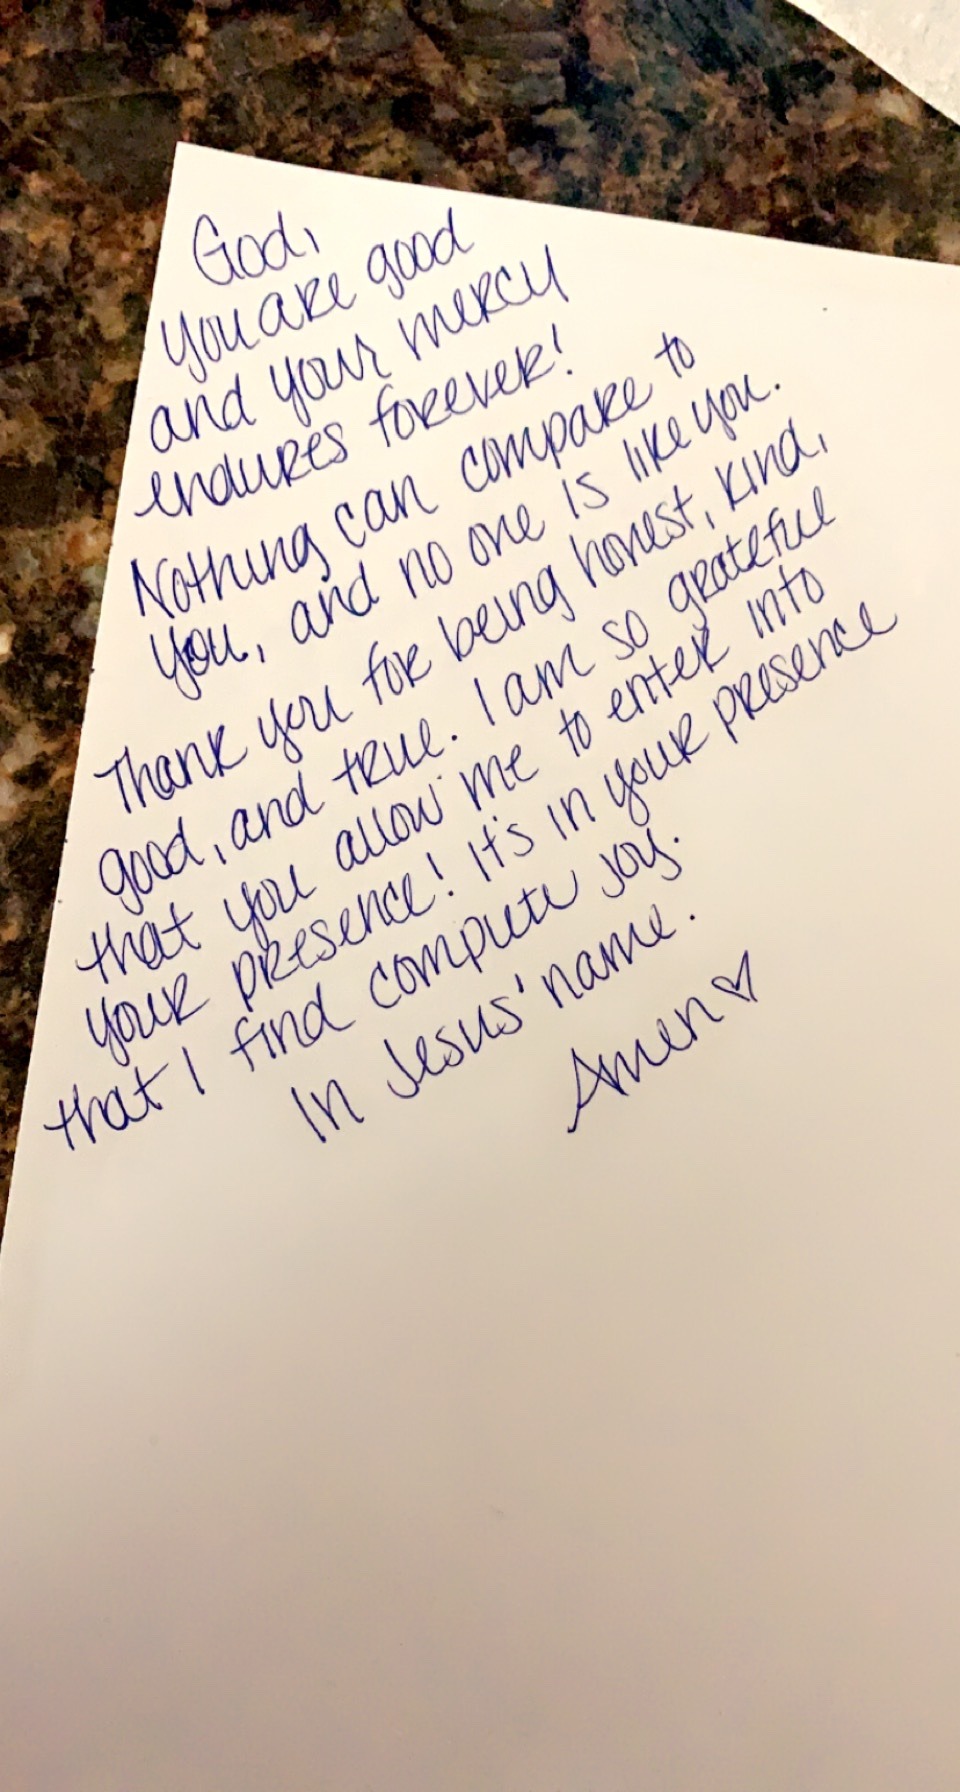 God,
you are good
and your mercy
endures forever!
Nothing can compare to
you, and no one is like you.
Thank you for being honest, kind,
good, and true. I am so grateful
that you allow me to enter into
your presence! It's in your presence
that I find complete joy.
In Jesus' name.
Amen ♡